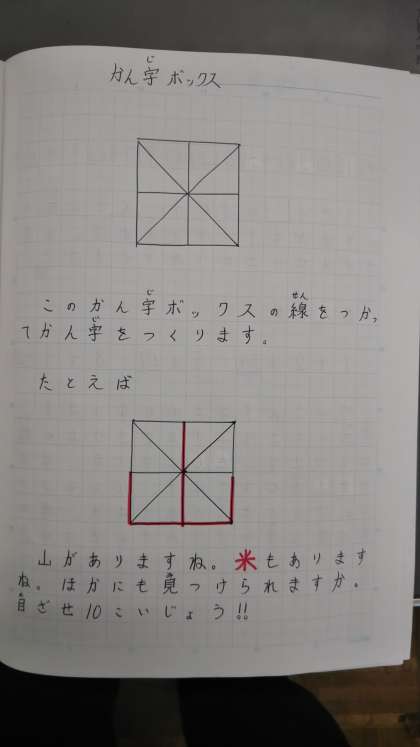 かん字ボックス
このかん字ボックスの線をつかっ
てかん字をつくります。
たとえば
山がありますね。米もあります
ね。ほかにも見つけられますか。
目ざせ10こいじょう!!